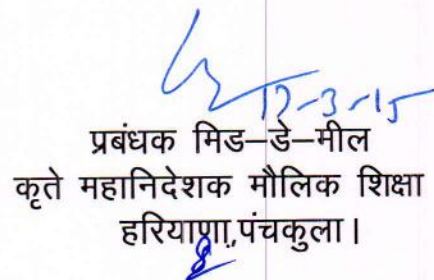 13-3-15
प्रबंधक मिड–डे–मील
कृते महानिदेशक मौलिक शिक्षा
हरियाणा,पंचकुला।